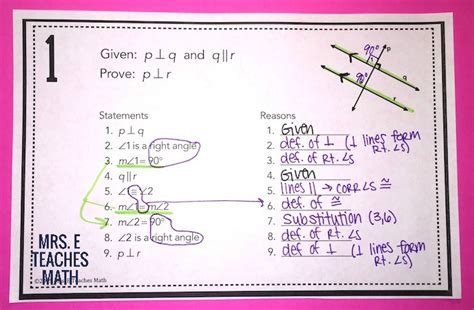 1
Given: p⊥q and q∥r
Prove: p⊥r
90°
p
1
q
90°
r
Statements
1. p⊥q
2. ∠1 is a right angle
3. m∠1=90°
4. q∥r
5. ∠1≅∠2
6. m∠1=m∠2
7. m∠2=90°
8. ∠2 is a right angle
9. p⊥r
Reasons
1. Given
2. def. of ⊥ (⊥ lines form rt. ∠s)
3. def. of rt. ∠s
4. Given
5. lines || → corr ∠s ≅
6. def. of ≅
7. Substitution (3,6)
8. def. of rt. ∠s
9. def. of ⊥ (⊥ lines form rt. ∠s)
MRS. E
TEACHES
MATH
Teaches Math